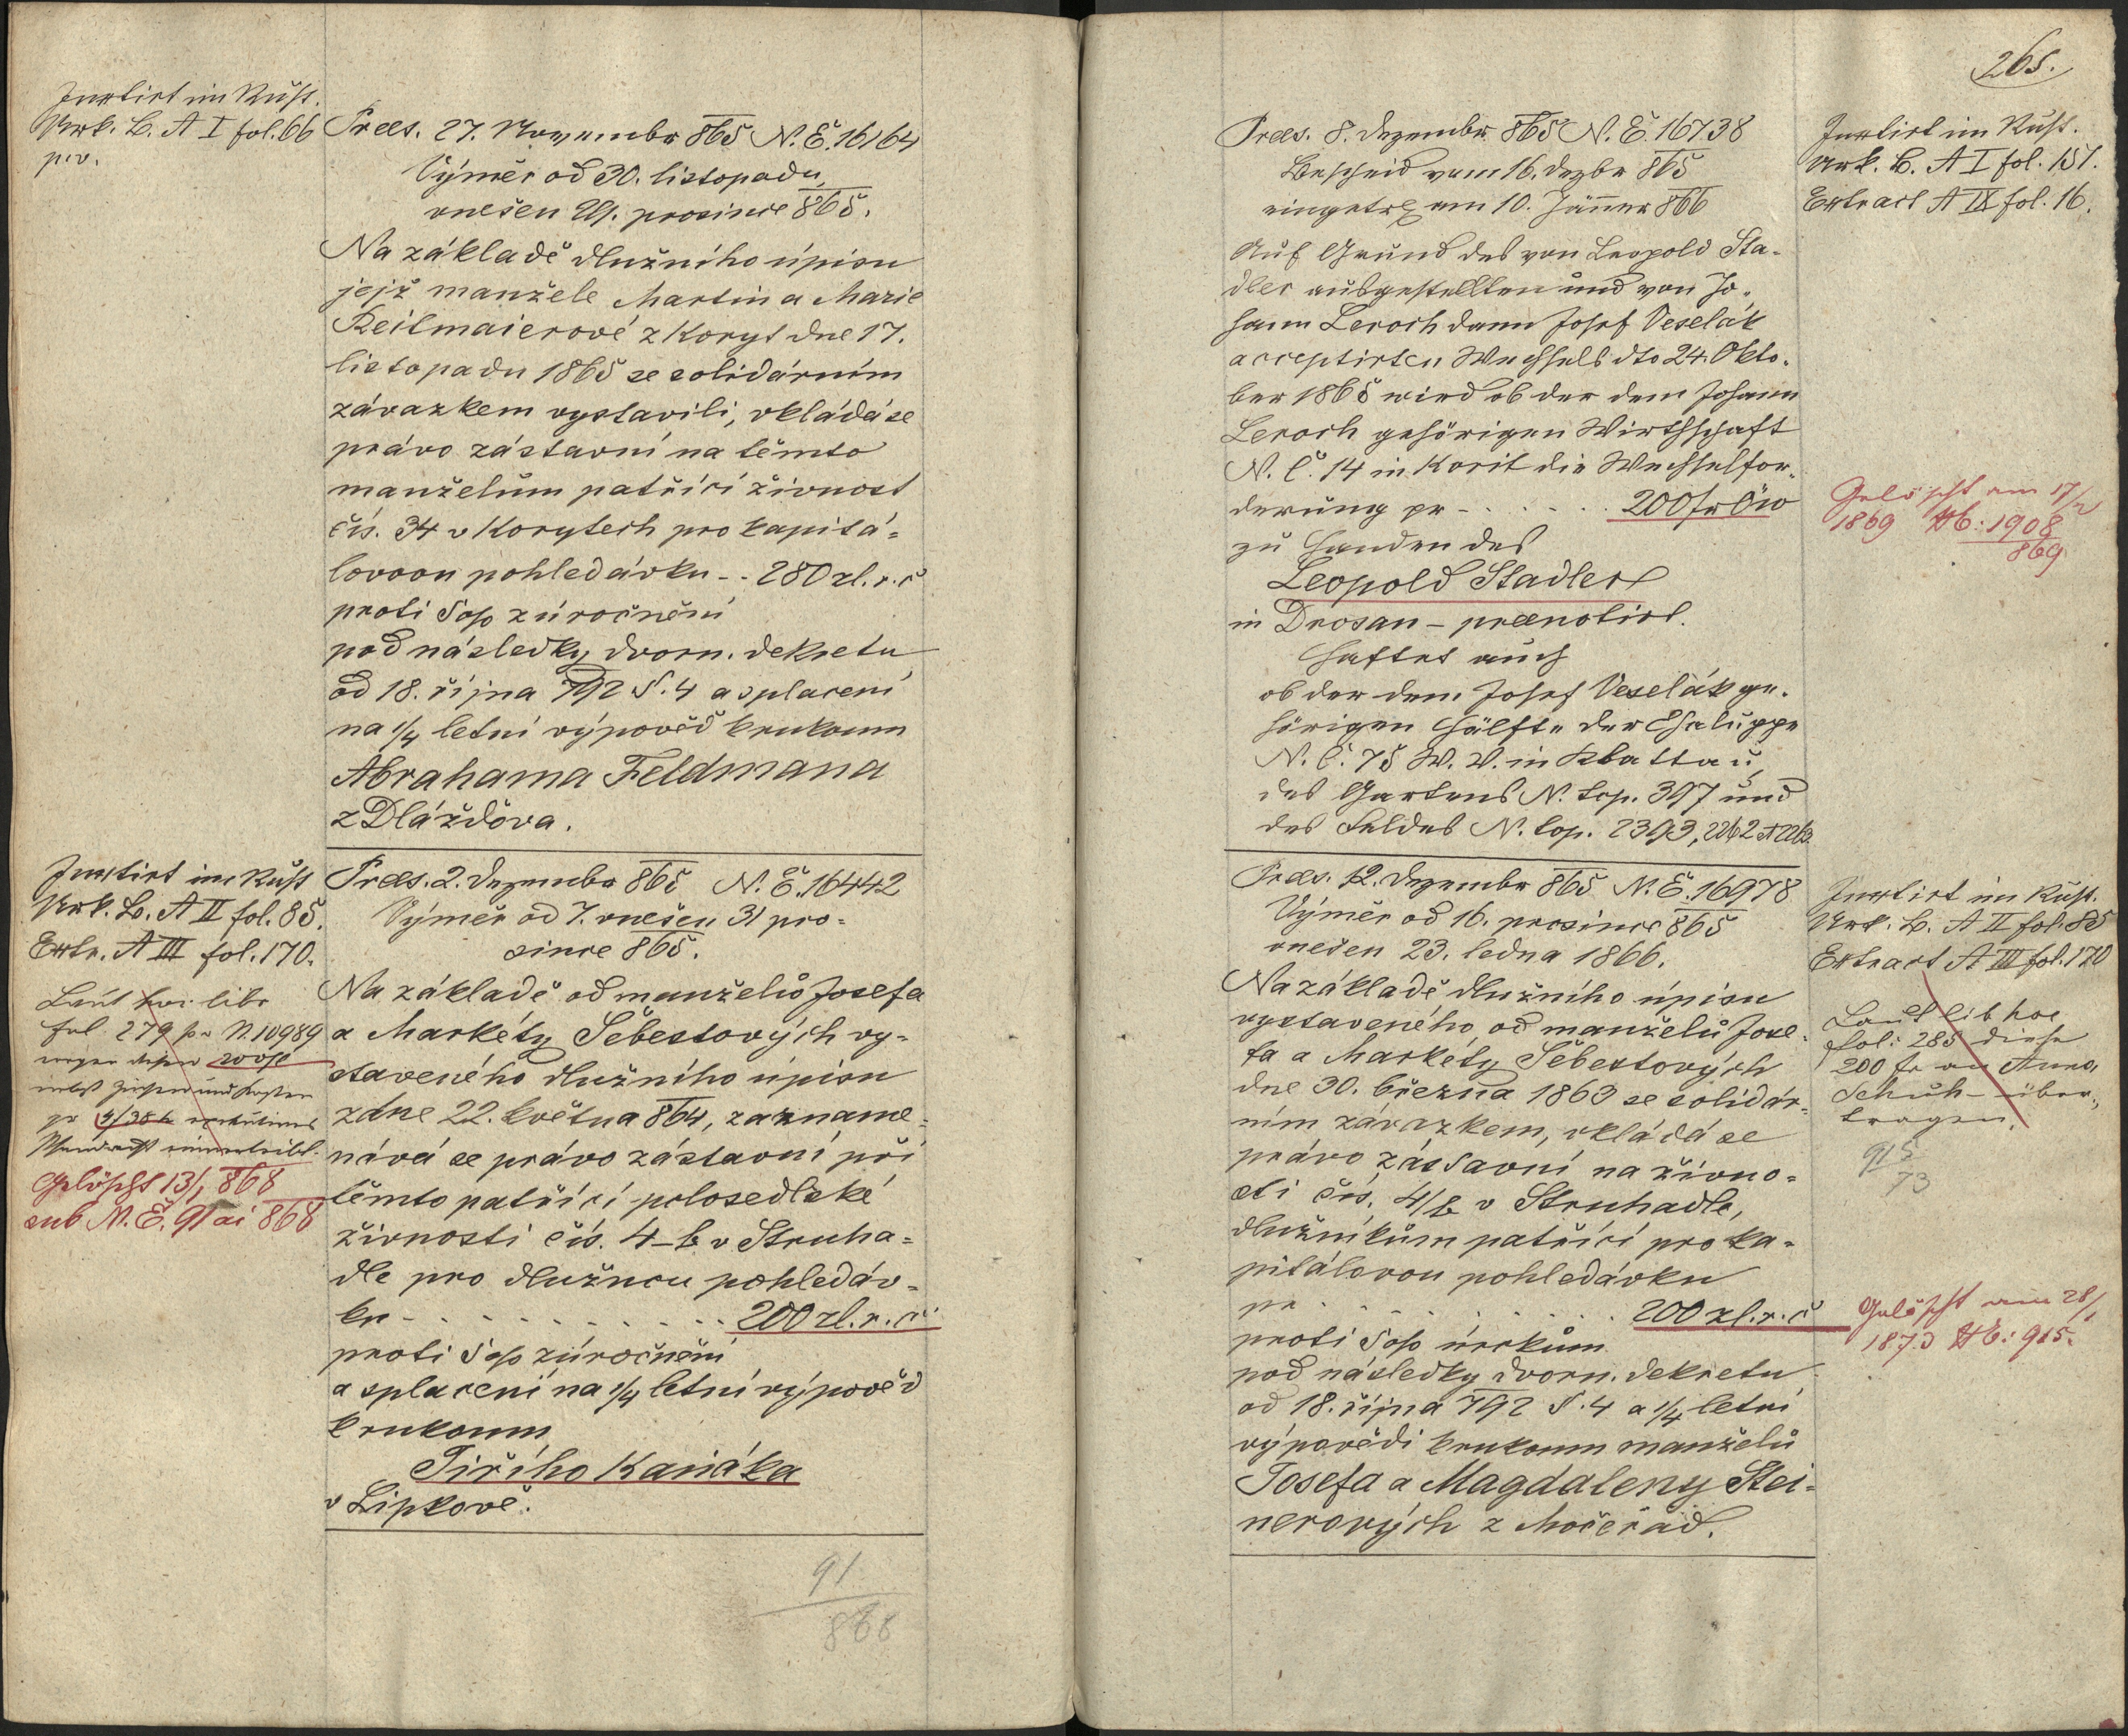 Inxtirt im Rust.
Urk. B. A I fol. 66
p. v.
Praes. 27. Novembr 865 N. E. 16164
Výměr od 30. listopadu
vnešen 29. prosince 865.
Na základě dlužního úpisu
jejž manželé Martin a Marie
Reitmaierové z Koryt dne 17.
listopadu 1865 se solidárním
závazkem vystavili, vkládá se
právo zástavní na těmto
manželům patřící živnost
čís. 34 v Korytech pro kapitá-
lovou pohledávku -- 280 zl. r. č
proti 5 % zúročnění
pod následky dvorn. dekretu
od 18. října 792 §. 4 a splacení
na 1/4 letní výpověď k rukoum
Abrahama Feldmana
z Dlážďova.
Inxtirt im Rust
Urk. B. A II fol. 85.
Extr. A III fol. 170.
Laut hoc libr
fol. 279 N. 10989
wegen dieser 200 fl
nebst Zinsen und Kosten
Pfandrecht einverleibt.
Gelöscht 13/1 868
sub N. E. 91 ai 868
Praes. 2. Dezembr 865 N. E. 16442
Výměr od 7. vnešen 31 pro-
since 865.
Na základě od manželů Josefa
a Markéty Šebestových vy-
staveného dlužního úpisu
z dne 22. května 864, zazname-
nává se právo zástavní při
těmto patřící polosedlské
živnosti čís. 4-b v Struha-
dle pro dlužnou pohledáv-
ku - - - - - - - - - - - 200 zl. r. č.
proti 5 % zúročnění
a splacení na 1/4 letní výpověď
k rukoum
Jiřího Kaňáka
v Lipkově.
91
868
265.
Praes. 8. Dezembr. 865 N. E. 16738
Bescheid vom 16. Dezbr 865
eingetr. am 10. Jänner 866
Auf Grund des von Leopold Sta-
dler ausgestellten und von Jo-
hann Leroch dann Josef Veselák
acceptirten Wechsels dto 24. Okto-
ber 1865 wird ob der dem Johann
Leroch gehörigen Wirthschaft
N. C. 14 in Korit die Wechselfor-
derung pr - . . . . . 200 fr ÖW
zu Handen des
Leopold Stadler
in Drosau - praenotirt.
Haftet auch
ob der dem Josef Veselák ge-
hörigen Hälfte der Chaluppe
N. C. 75 W. V. in Klattau,
des Gartens N. top. 397 und
des Feldes N. top. 2393, 2262 et 2263.
Inxtirt im Rust.
Urk. B. A I fol. 157.
Extract A IX fol. 16.
Gelöscht am 17/2
1869 Hb: 1908
869
Praes. 12. Dezembr 865 N. E. 16978
Výměr od 16. prosince 865
vnešen 23. ledna 1866.
Na základě dlužního úpisu
vystaveného od manželů Jose-
fa a Markéty Šebestových
dne 30. března 1863 se solidár-
ním závazkem, vkládá se
právo zástavní na živno-
sti čís. 4/b v Struhadle,
dlužníkům patřící pro ka-
pitálovou pohledávku
pr . . . . . . . . . . 200 zl. r. č
proti 5 % úrokům
pod následky dvorn. dekretu
od 18. října 792 §. 4 a 1/4 letní
výpovědi k rukoum manželů
Josefa a Magdaleny Stei-
nerových z Močerad.
Inxtirt im Rust.
Urk. B. A II fol. 85
Extract A III fol. 170
Laut lib hoc
fol: 285 diese
200 fr an Anna
Schuh - über-
tragen.
915
73
Gelöscht am 28/1
1873 Hb: 915.